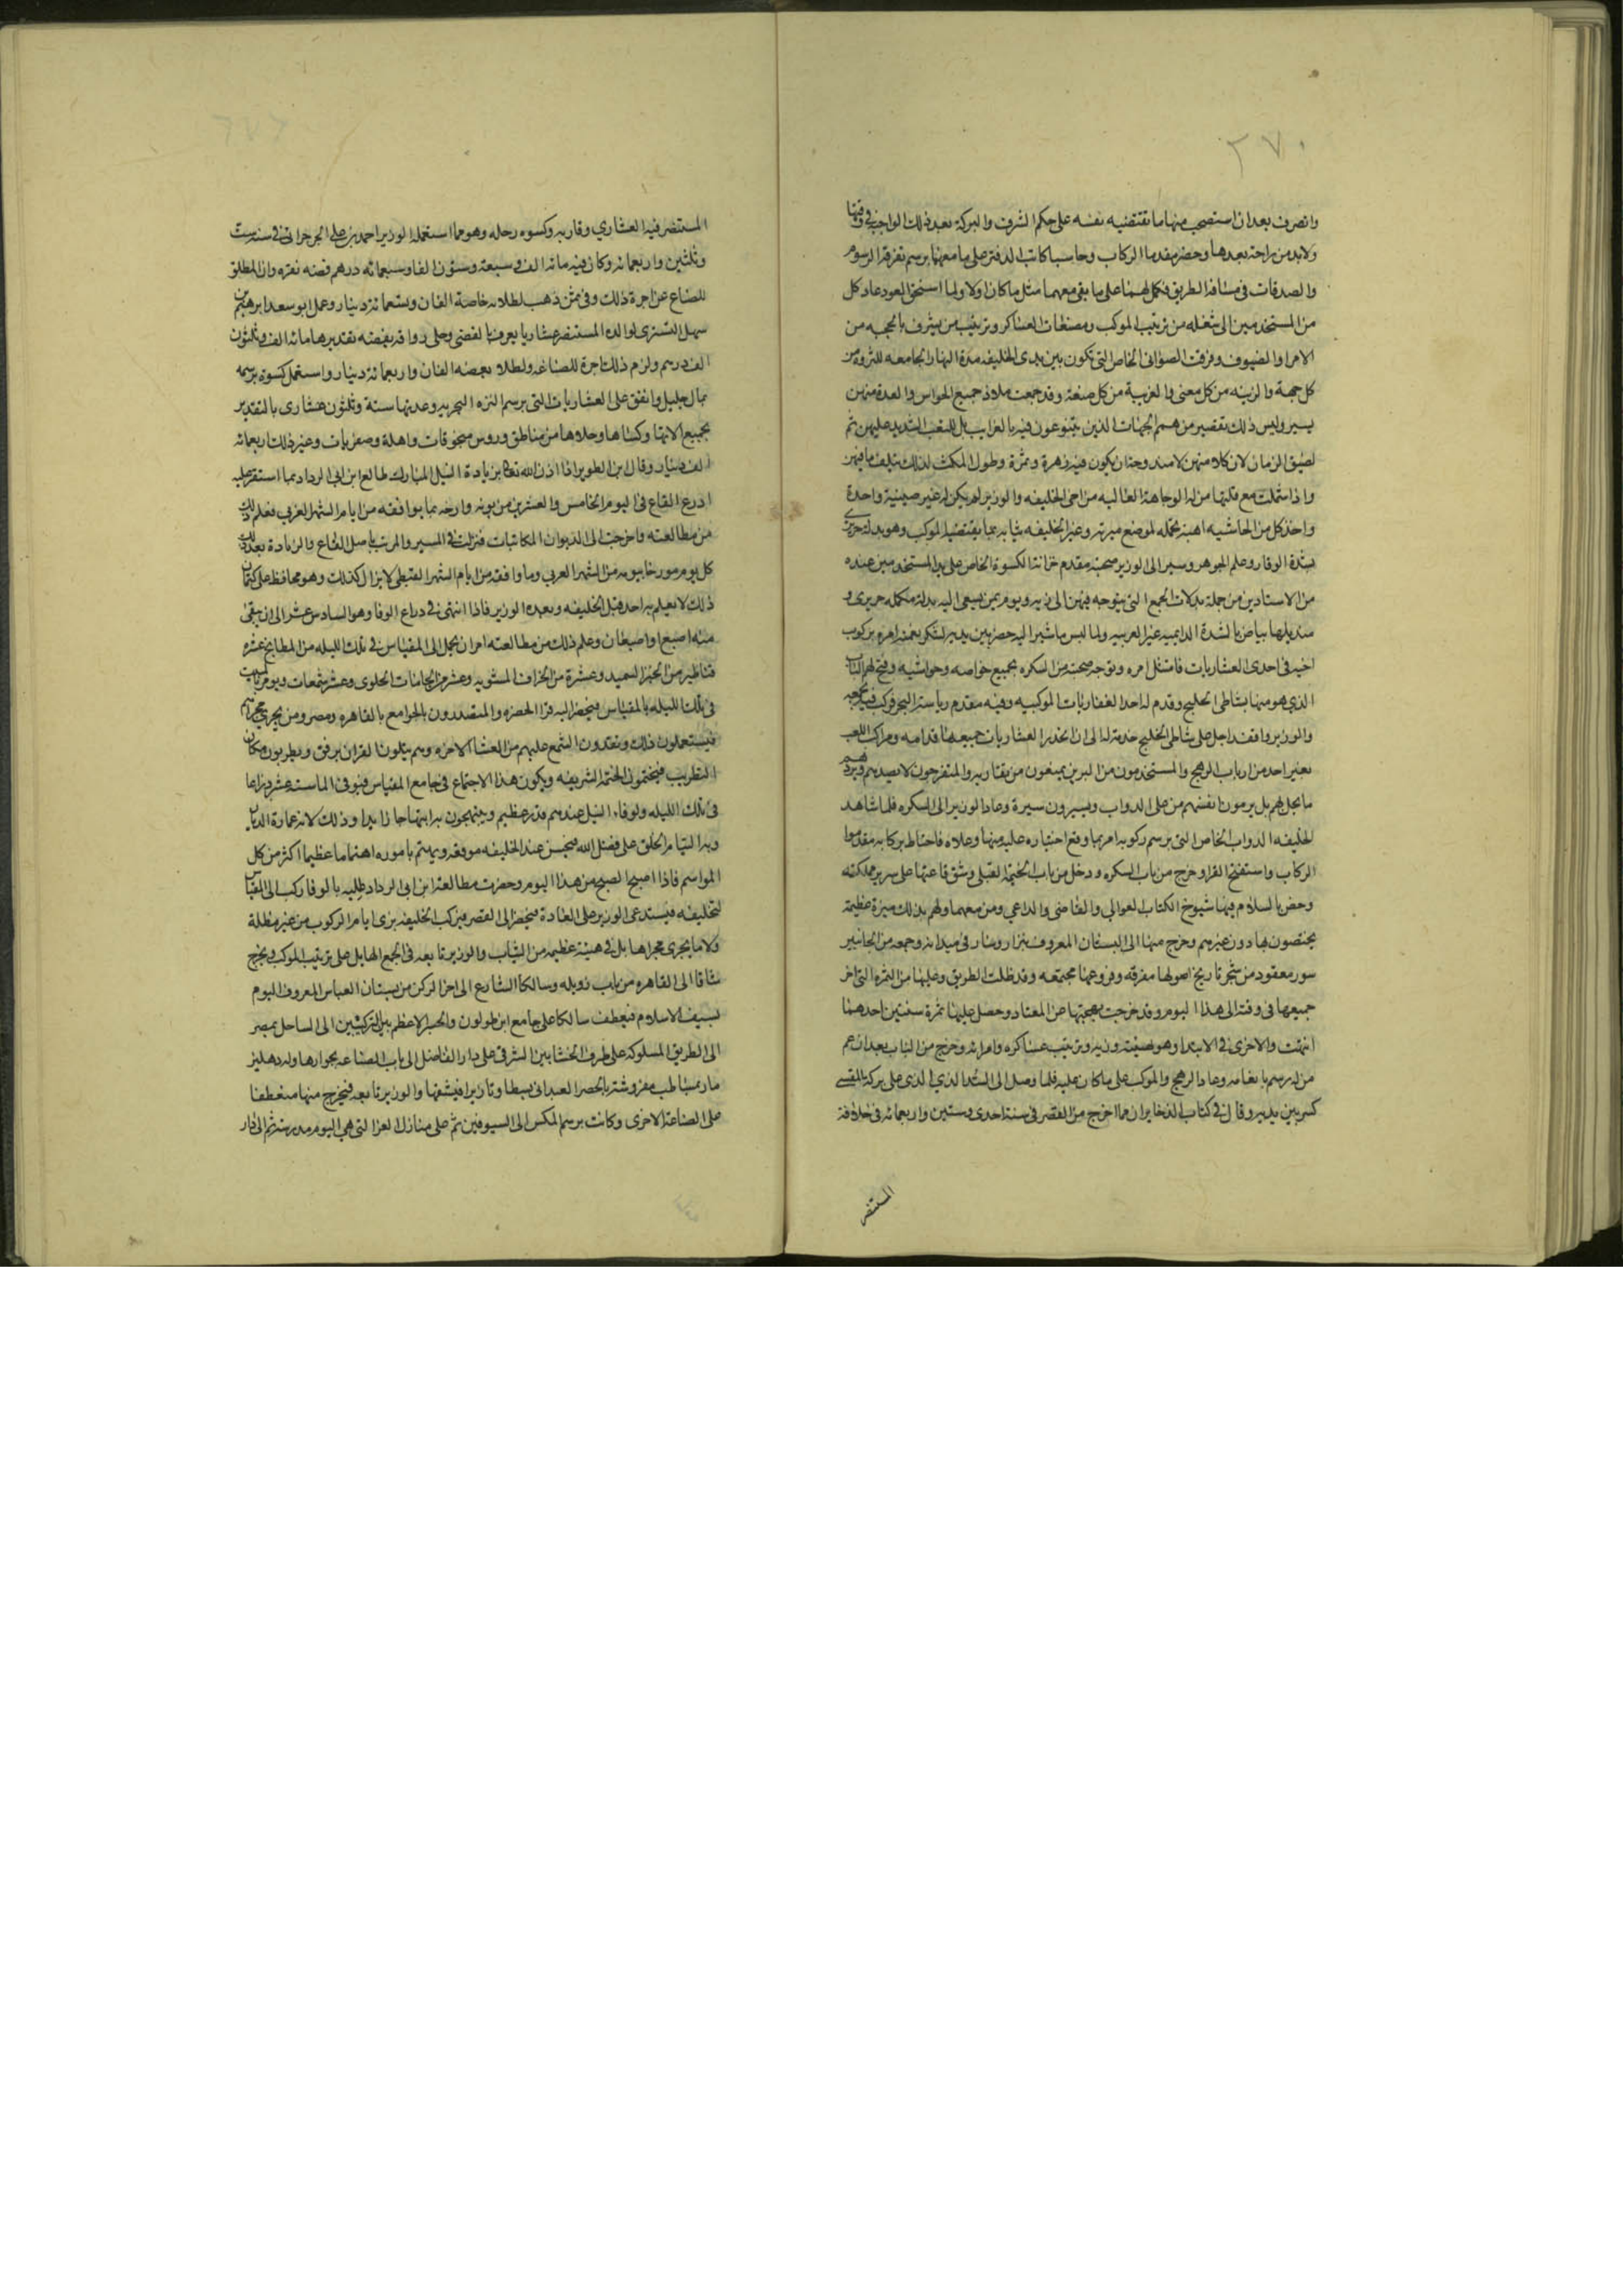 ٢٧٠
وانصرف بعد ان استصحب منها ما تقتضيه نفسه على حكم الشرف والبركة بعد ذلك الواجب في وقتها
ولابد من راحة بعدها وحضر مقدما الركاب وحاسبا كاتب الدفتر على ما معهما برسم تفرقة الرسوم
والصدقات في مسافة الطريق فكمل لهما على ما بقي معهما مثل ما كان اولا ولما استحق العود عاد كل
من المستخدمين الى شغله من ترتيب الموكب ومصفات العساكر وترتيب من يشرف بالحجبه من
الامرا والضيوف وفرقت الصوانى الخاص التى تكون بين يدى الخليفه مدة النهار الجامعه للثروة من
كل جهة والزينه من كل معنى والغريبة من كل صنعة وقد جمعت ملاذ جميع الحواس والعدة منهن
يسير وليس ذلك تقصير من همم الجهات الذين يتنوعون فيه بالغراب بل للتعب الشديد عليهن ثم
لضيق الزمان لان كلا منهن لامندوحة ان يكون فيه زهرة وثمرة وطول المكث لذلك يتلف ما فيهن
واذا شملت مع قلتها من له الوجاهة العاليه من اخى الخليفه والوزير لم يكن له غير صينية واحدة
واخذ كل من الحاشيه اهبة تجمله لموضع ميزته وغير الخليفه ثيابه بما يقتضيه الموكب وهو بدلة حريرى
بشدة الوقار وعلم الجوهر وسير الى الوزير صحبة مقدم خزانة الكسوة الخاص على يد المستخدمين عنده
من الاستادين من جملة بدلات الجمع التى يتوجه فيهن الى زيه ويوم يمن يسعى اليه بدلة مكمله حريرى و
منديلها بياض بالشدة الدايميه غير العربيه ولما لبس ما سير اليه حضر بين يديه لشكر نعمته امره بركوب
اخيه في احدى العشاريات فامتثل امره وتوجه صحبته من السكره بجميع خواصه وحواشيه وفتح لهم الباب
الذى هو منها بشاطى الخليج وقدم له احد العشاريات الموكبيه وفيه مقدم رياسة البحر فركب فيه بجمعيه
والوزير واقف راجل على شاطى الخليج خدمة له الى ان انحدر العشاريات جميعها قدامه ومراكب اللعب
بغير احد من ارباب الرهج والمستخدمون من البرين يمنعون من يقاربه والمتفرجون لا يصدهم ويردهم
ما يحل لهم بل يرمون انفسهم من على الدواب ويسيرون سيرة وعاد الوزير الى السكره فلما شاهد
الخليفه الدواب الخاص التى برسم ركوبه امر بما وقع اختياره عليه منها وعلاه فاحتاط بركابه مقدموا
الركاب واستفتح القرا وخرج من باب السكره ودخل من باب الخيمة القبلى وشق قاعتها على سرير مملكته
وخص بالسلام فيها شيوخ الكتاب العوالى والقاضى والداعى ومن معهما ولهم بذلك ميزة عظيمة
يختصون بها دون غيرهم وخرج منها الى البستان المعروف بنزار وسار في ميدانه وجمعه من الجانبين
سور معقود من شجر نارنج اصولها مفرقه وفروعها مجتمعه وقد ظلت الطريق وعليها من الثمرة التى اخر
جميعها فى وقته الى هذا اليوم وقد خرجت بهجتها عن المعتاد وحصل عليها ثمرة سنتين احدهما
انتهت والاخرى فى الابتدا وهو بهيئته وزيه وترتيب عساكره وامرائه وخرج من الباب بعد ان عم
من له رسم بانعامه وعاد الرهج والموكب على ما كان عليه فلما وصل الى السد الذى على بركة المقسى
كسر بين يديه وقال فى كتاب الذخاير ان مما اخرج من القصر فى سنة احدى وستين واربعمائه فى خلافة
المستنصر
المستنصر فيه العشارى وقاربه وكسوه رحله وهو مما استعمله الوزير احمد بن على الجرجرانى فى سنة ست
وثلثين واربعمائه وكان فيه مائه الف وسبعة وستون الفا وسبعمائه درهم فضه نقره وان المطلق
للصناع عن اجرة ذلك وفى ثمن ذهب لطلائه خاصة الفان وتسعمائة دينار وعمل ابو سعد ابرهيم بن
سهل التسترى لوالدة المستنصر عشاريا يعرف بالفضى وحلى رواقه بفضه تقديرها مائه الف وثلثون
الف درهم ولزم ذلك اجرة للصناغه ولطلاء بعضه الفان واربعمائة دينار واستعمل كسوة برسمه
بمال جليل وانفق على العشاريات التى برسم النزه البحريه وعدتها ستة وثلثون عشارى بالتقدير
بجميع الاتها وكساها وحلاها من مناطق وروس منجوقات واهلة وصفريات وغير ذلك اربعمائه
الف دينار وقال ابن الطوير اذا اذن الله تعالى بزيادة النيل المبارك طالع ابن ابى الرداد بما استقر عليه
اذرع القاع فى اليوم الخامس والعشرين من بونه وارخه بما يوافقه من ايام الشهر العربى فعلم ذلك
من مطالعته واخرجت الى ديوان المكاتبات فنزلت فى المسير والمرتب باصل القاع والزيادة بعد ذلك
كل يوم مورخا بيومه من الشهر العربى وما وافقه من ايام الشهر القبطى لا يزال كذلك وهو محافظ على كتمان
ذلك لا يعلم به احد قبل الخليفه وبعده الوزير فاذا انتهى فى ذراع الوفا وهو السادس عشر الى ان يبقى
منه اصبع او اصبعان وعلم ذلك من مطالعته امر ان يحمل الى المقياس فى تلك الليله من المطابخ عشره
قناطير من الخبز السميد وعشرة من الخراف المشويه وعشر من الجامات الحلوى وعشر شمعات ويومر بالمبيت
فى تلك الليله بالمقياس فيحضر اليه قرا الحضره والمتصدرون بالجوامع بالقاهره ومصر ومن يجرى مجراهم
فيستعملون ذلك ويقدون الشمع عليهم من العشا الاخره وهم يتلون القران برفق ويطربون بمكان
التطريب فيختمون الختمة الشريفه ويكون هذا الاجتماع فى جامع المقياس فيوفى الما ستة عشر ذراعا
فى تلك الليله ولوفاء النيل عندهم قدر عظيم ويبتهجون به ابتهاجا زايدا وذلك لانه عمارة الديار
وبه التيام الخلق على فضل الله فيحسن عند الخليفه موقعه ويهتم بامره اهتماما عظيما اكثر من كل
المواسم فاذا اصبح الصبح من هذا اليوم وحضرت مطالعة ابن ابى الرداد عليه بالوفا ركب الى المقياس
لتخليقه فيستدعى الوزير على العادة فيحضر الى القصر فيركب الخليفه بزى ايام الركوب من غير مظلة
ولا ما يجرى مجراها بل فى هيئة عظيمه من الثياب والوزير تابعه فى الجمع الهايل على ترتيب الموكب ويخرج
شاقا الى القاهره من باب زويله وسالكا الشارع الى اخر الركن من بستان العباس المعروف اليوم
بسيف الاسلام فيعطف سالكا على جامع ابن طولون والجسر الاعظم بين الركنين الى الساحل بمصر
الى الطريق المسلوكه على طرف الخشابين الشرقى على دار الفاضل الى باب الصناعه بجوارها وله دهليز
ماد بمساطب مفروشة بالحصر العبدانى بسطا وتازيرا فيشقها والوزير تابعه فيخرج منها منعطفا
على الصناعة الاخرى وكانت برسم المكس الى السيوفين ثم على منازل العز التى هى اليوم مدرسة ثم الى دار